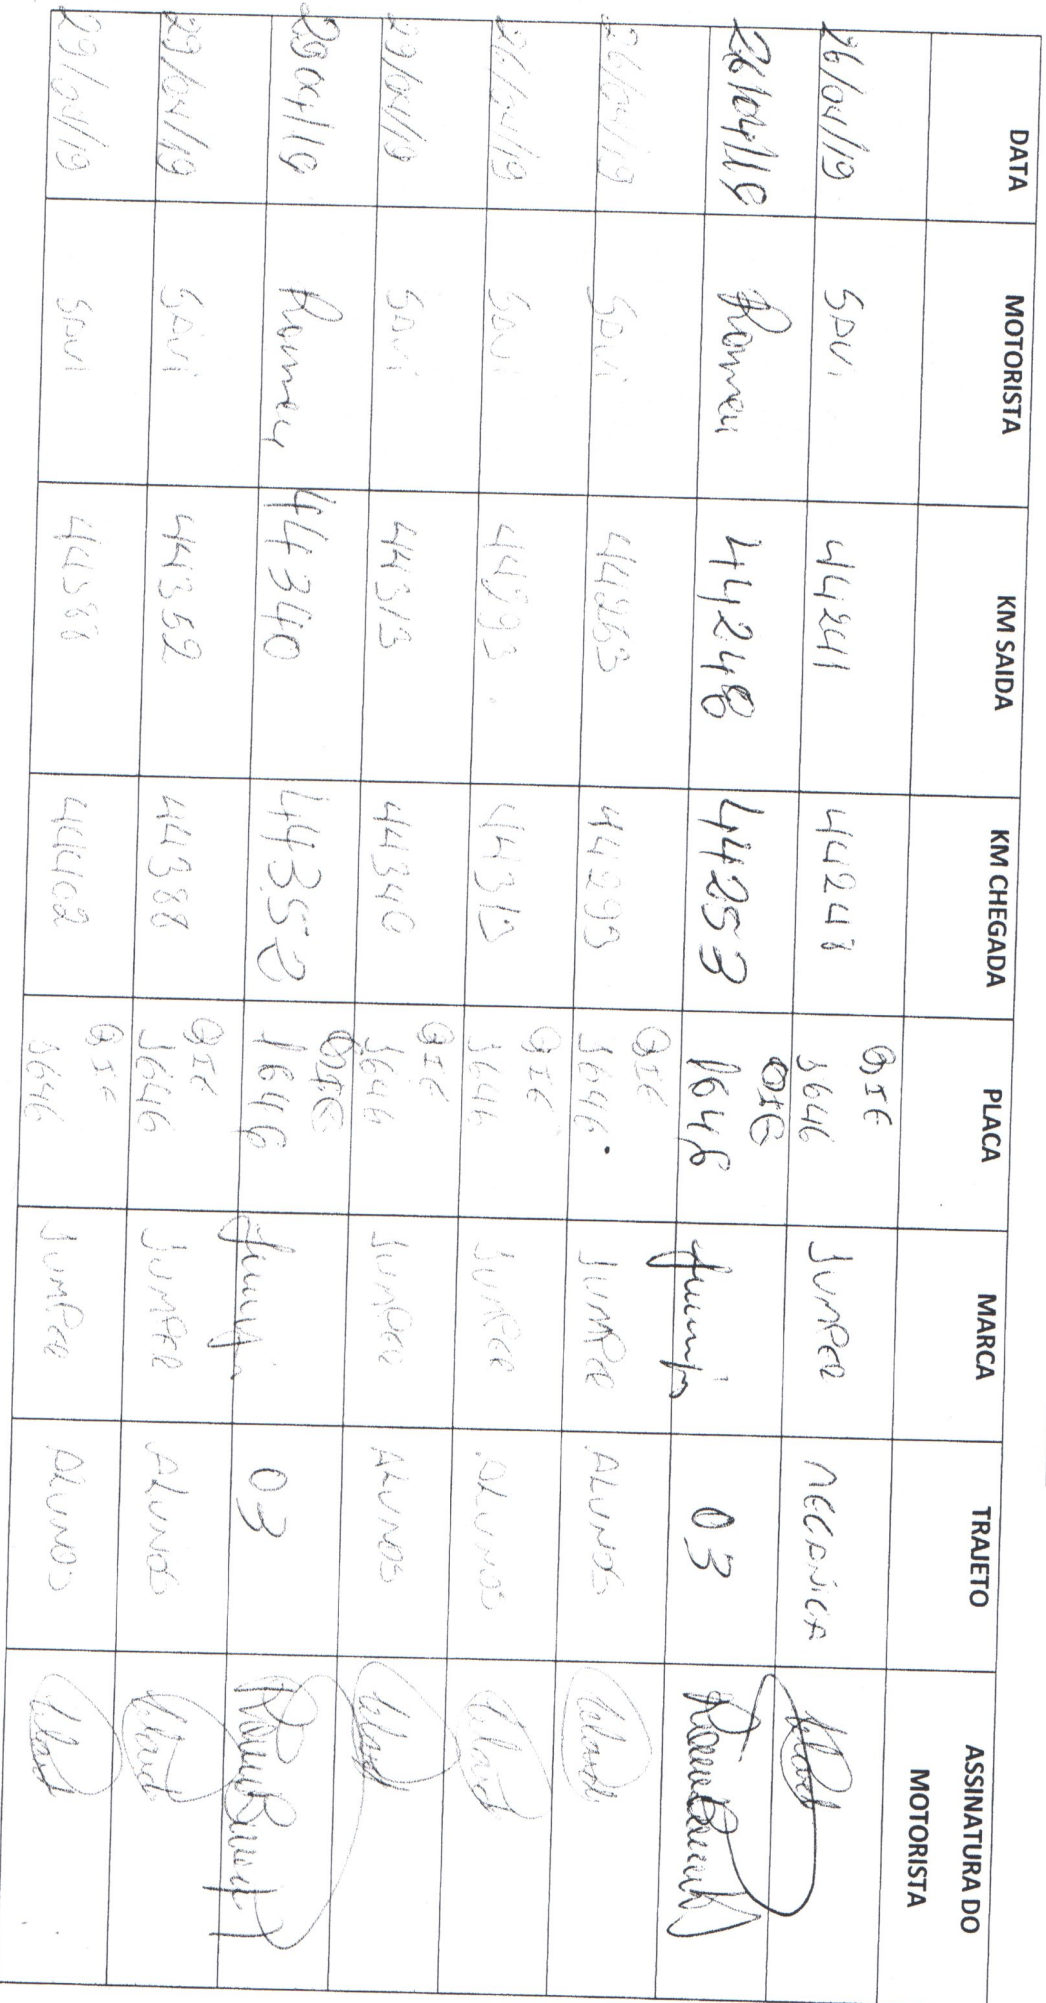 DATA MOTORISTA KM SAIDA KM CHEGADA PLACA MARCA TRAJETO ASSINATURA DO MOTORISTA
26/04/19 SAVI 44241 44248 QIE 1646 JUMPER MECANICA
26/04/19 Romeu 44248 44253 QIE 1646 Jumper 03
26/04/19 SAVI 44253 44293 QIE 1646 JUMPER ALUNOS
26/04/19 SAVI 44293 44313 QIE 1646 JUMPER ALUNOS
29/04/19 SAVI 44313 44340 QIE 1646 JUMPER ALUNOS
29/04/19 Romeu 44340 44352 QIE 1646 Jumper 03
29/04/19 SAVI 44352 44388 QIE 1646 JUMPER ALUNOS
29/04/19 SAVI 44388 44402 QIE 1646 JUMPER ALUNOS